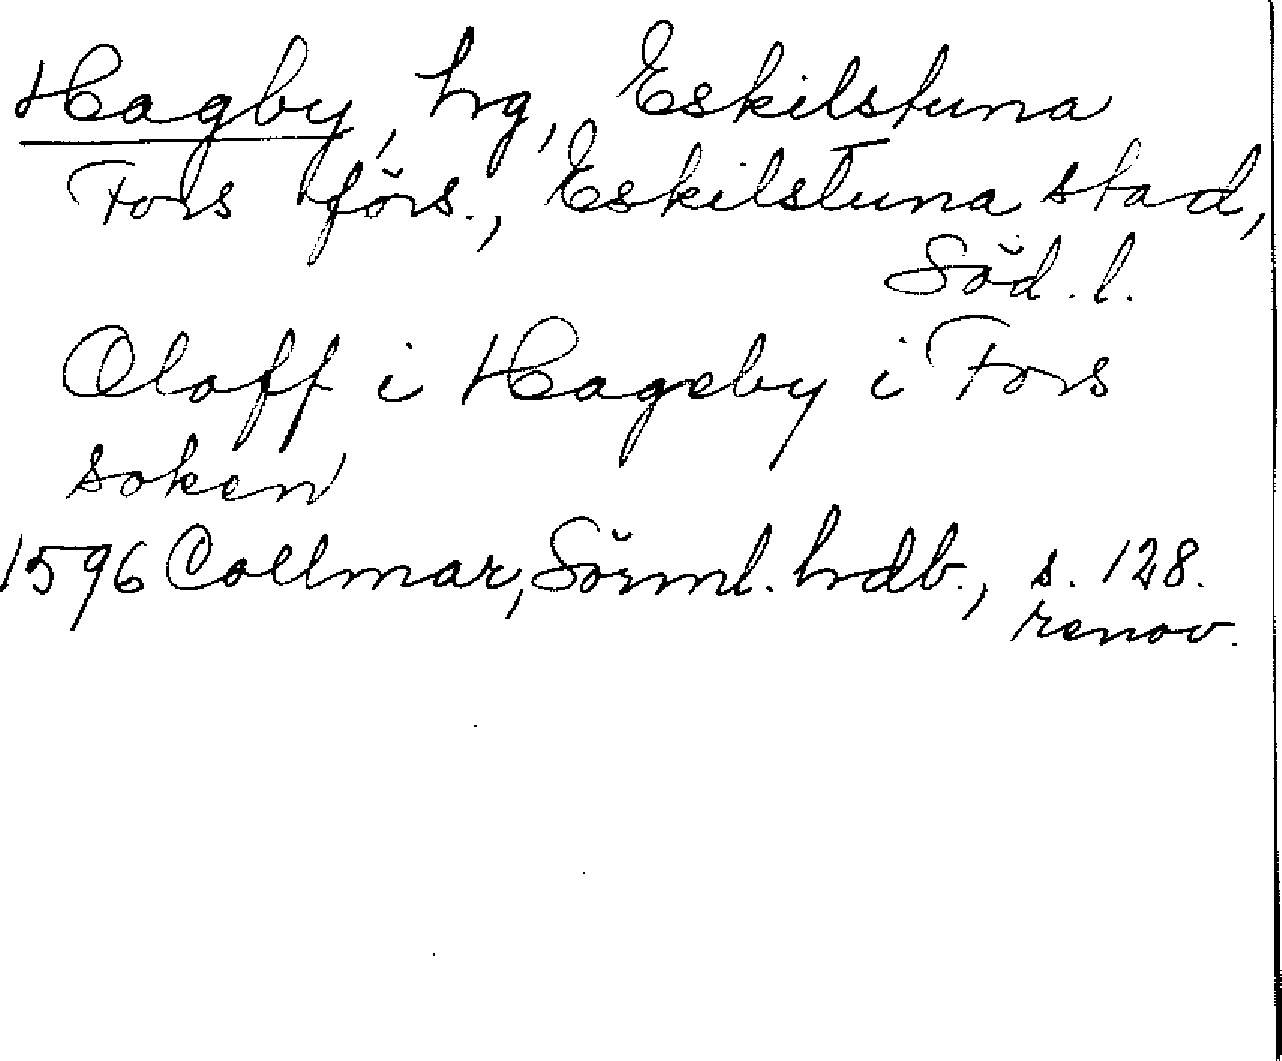 Hagby, hg, Eskilstuna
Fors förs., Eskilstuna stad,
Söd. l.
Oloff i Hageby i Fors
soken
1596 Collmar, Sörml. hrdb., s. 128.
renov.